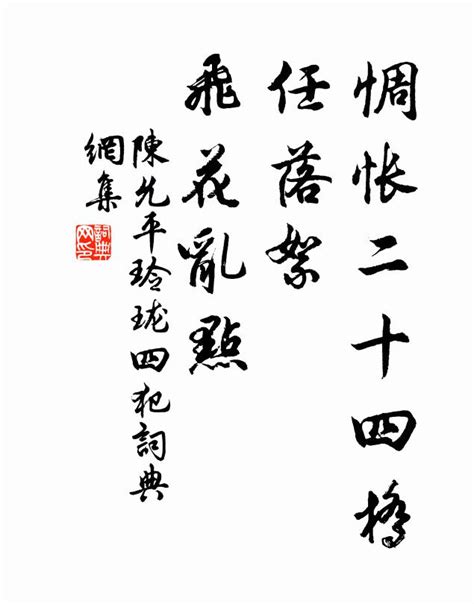 惆怅二十四橋
任落絮
飛花亂點
陳允平玲瓏四犯詞典
網集